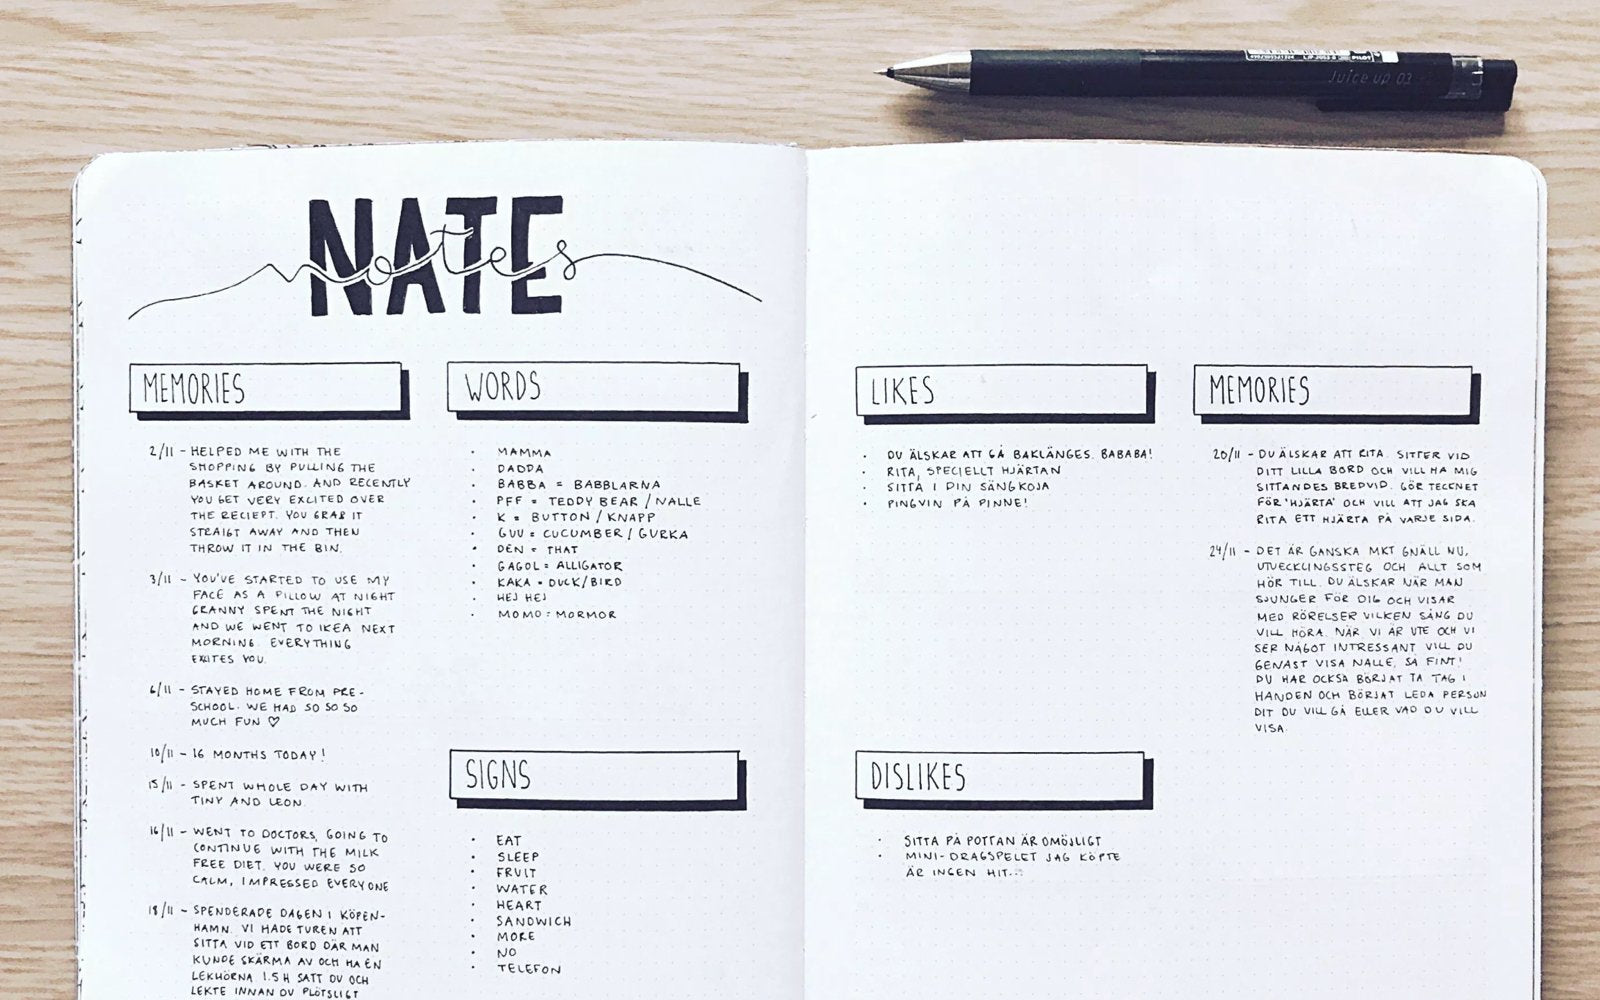 Juice up 03
PILOT
NATE
notes
MEMORIES
2/11 - HELPED ME WITH THE
SHOPPING BY PULLING THE
BASKET AROUND. AND RECENTLY
YOU GET VERY EXCITED OVER
THE RECIEPT. YOU GRAB IT
STRAIGT AWAY AND THEN
THROW IT IN THE BIN.
3/11 - YOU'VE STARTED TO USE MY
FACE AS A PILLOW AT NIGHT
GRANNY SPENT THE NIGHT
AND WE WENT TO IKEA NEXT
MORNING. EVERYTHING
EXITES YOU.
6/11 - STAYED HOME FROM PRE-
SCHOOL. WE HAD SO SO SO
MUCH FUN ♡
10/11 - 16 MONTHS TODAY!
15/11 - SPENT WHOLE DAY WITH
TINY AND LEON.
16/11 - WENT TO DOCTORS, GOING TO
CONTINUE WITH THE MILK
FREE DIET. YOU WERE SO
CALM, IMPRESSED EVERYONE
18/11 - SPENDERADE DAGEN I KÖPEN-
HAMN. VI HADE TUREN ATT
SITTA VID ETT BORD DÄR MAN
KUNDE SKÄRMA AV OCH HA EN
LEKHÖRNA 1.5 H SATT DU OCH
LEKTE INNAN DU PLÖTSLIGT
WORDS
· MAMMA
· DADDA
· BABBA = BABBLARNA
· PFF = TEDDY BEAR / NALLE
· K = BUTTON / KNAPP
· GUU = CUCUMBER / GURKA
· DEN = THAT
· GAGOL = ALLIGATOR
· KAKA = DUCK/BIRD
· HEJ HEJ
· MOMO = MORMOR
SIGNS
· EAT
· SLEEP
· FRUIT
· WATER
· HEART
· SANDWICH
· MORE
· NO
· TELEFON
LIKES
· DU ÄLSKAR ATT GÅ BAKLÄNGES. BABABA!
· RITA, SPECIELLT HJÄRTAN
· SITTA I DIN SÄNGKOJA
· PINGVIN PÅ PINNE!
DISLIKES
· SITTA PÅ POTTAN ÄR OMÖJLIGT
· MINI-DRAGSPELET JAG KÖPTE
ÄR INGEN HIT...
MEMORIES
20/11 - DU ÄLSKAR ATT RITA. SITTER VID
DITT LILLA BORD OCH VILL HA MIG
SITTANDES BREDVID. GÖR TECKNET
FÖR 'HJÄRTA' OCH VILL ATT JAG SKA
RITA ETT HJÄRTA PÅ VARJE SIDA.
24/11 - DET ÄR GANSKA MKT GNÄLL NU,
UTVECKLINGSSTEG OCH ALLT SOM
HÖR TILL. DU ÄLSKAR NÄR MAN
SJUNGER FÖR DIG OCH VISAR
MED RÖRELSER VILKEN SÅNG DU
VILL HÖRA. NÄR VI ÄR UTE OCH VI
SER NÅGOT INTRESSANT VILL DU
GENAST VISA NALLE, SÅ FINT!
DU HAR OCKSÅ BÖRJAT TA TAG I
HANDEN OCH BÖRJAT LEDA PERSON
DIT DU VILL GÅ ELLER VAD DU VILL
VISA.